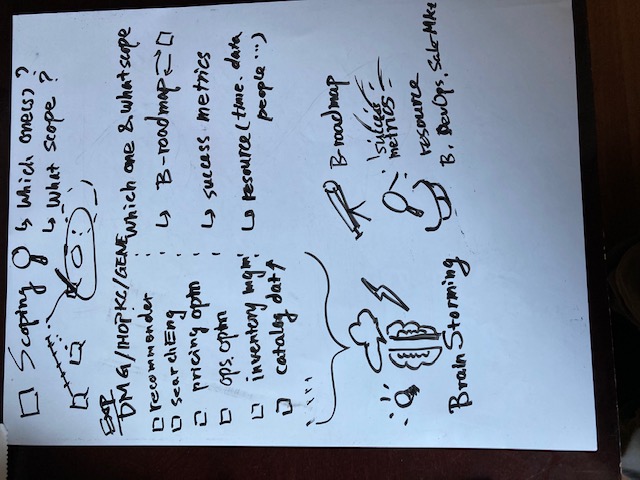 Scoping
↳ Which one(s)?
↳ What scope?
Exp
DMG/IHOPKC/GENE
recommender
searchEng
pricing optm
ops. optm
inventory mgm!
catalog dat↑
Which one & what scope
↳ B-roadmap
↳ success metrics
↳ resource (time. data
people ...)
Brain Storming
B-roadmap
success
metrics
resource
B. DevOps. Sale-Mkt